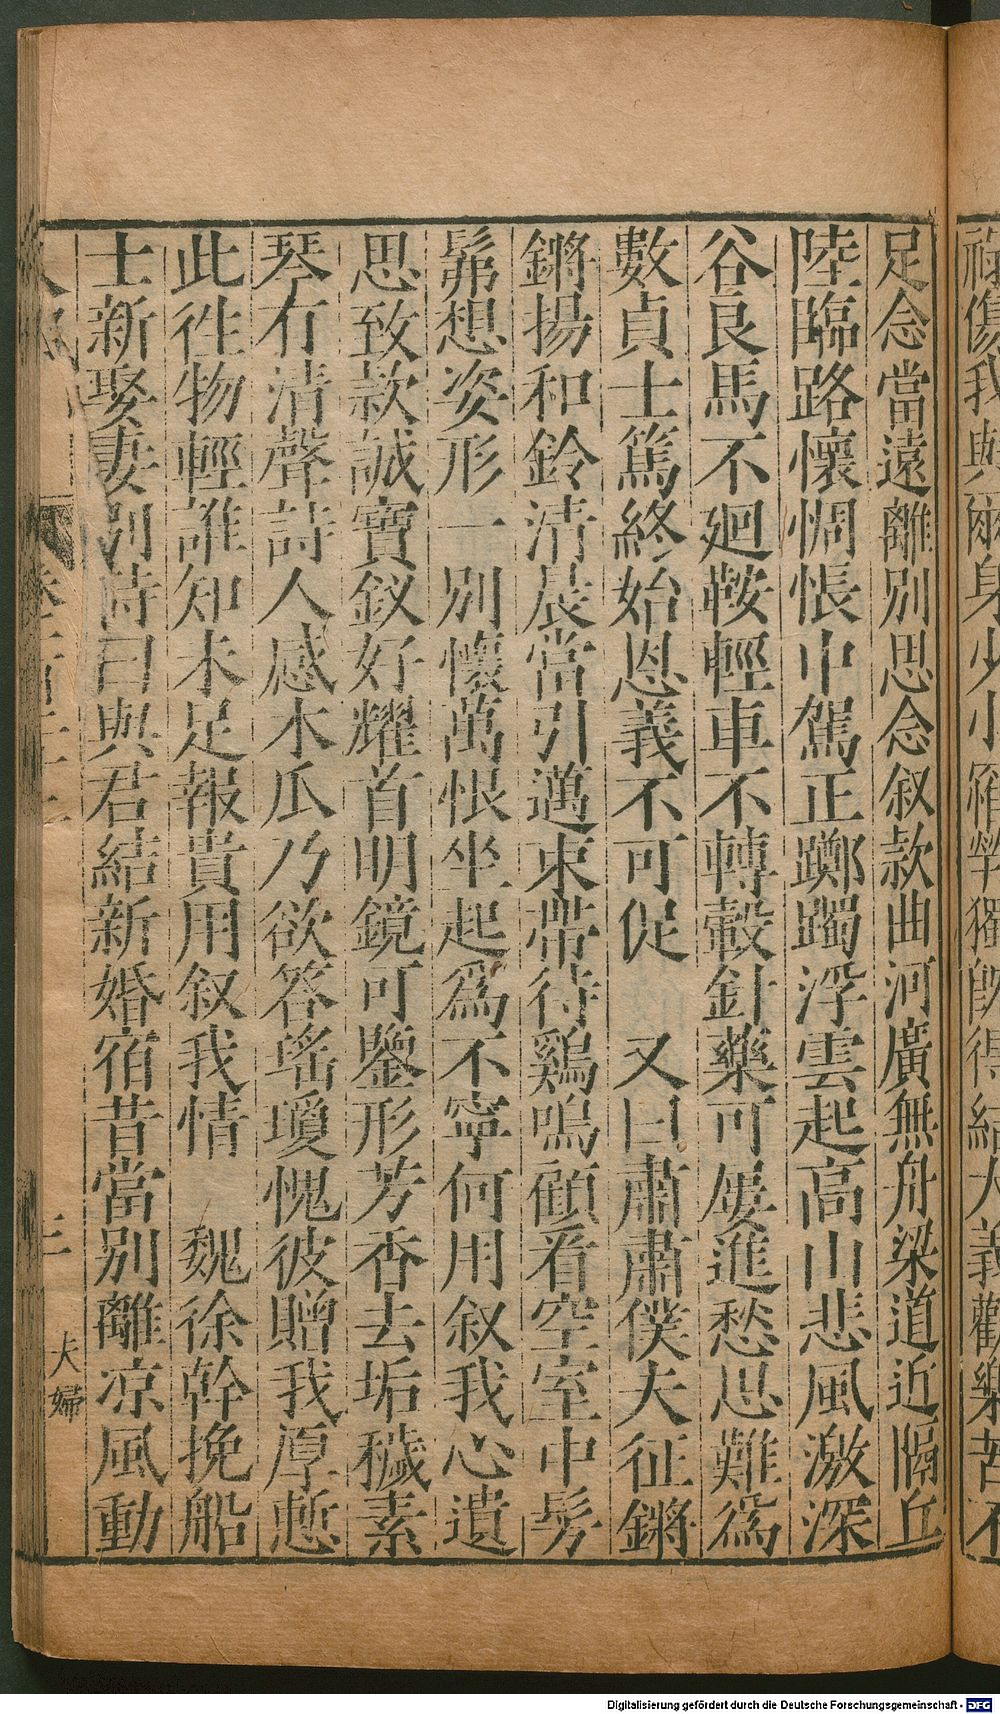 祿傷我與爾身少小罹煢獨旣得結大義歡樂苦不
足念當遠離別思念叙款曲河廣無舟梁道近隔丘
陸臨路懷惆悵中駕正躑躅浮雲起高山悲風激深
谷良馬不廻鞍輕車不轉轂針藥可屢進愁思難爲
數貞士篤終始恩義不可促 又曰肅肅僕夫征鏘
鏘揚和鈴清晨當引邁束帶待鷄鳴顧看空室中髣
髴想姿形一別懷萬恨坐起爲不寧何用叙我心遺
思致款誠寶釵好耀首明鏡可鑒形芳香去垢穢素
琴有清聲詩人感木瓜乃欲答瑤瓊愧彼贈我厚慙
此往物輕誰知未足報貴用叙我情 魏徐幹挽船
士新娶妻別詩曰與君結新婚宿昔當別離凉風動
三 夫婦
Digitalisierung gefördert durch die Deutsche Forschungsgemeinschaft - DFG